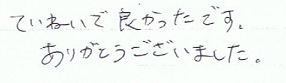 ていねいで良かったです。
ありがとうございました。